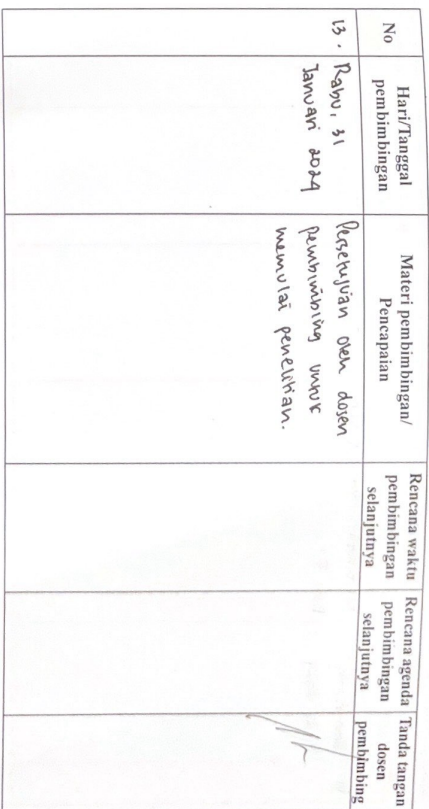 No
Hari/Tanggal
pembimbingan
Materi pembimbingan/
Pencapaian
Rencana waktu
pembimbingan
selanjutnya
Rencana agenda
pembimbingan
selanjutnya
Tanda tangan
dosen
pembimbing
13.
Rabu, 31
Januari 2024
Persetujuan oleh dosen
pembimbing untuk
memulai penelitian.